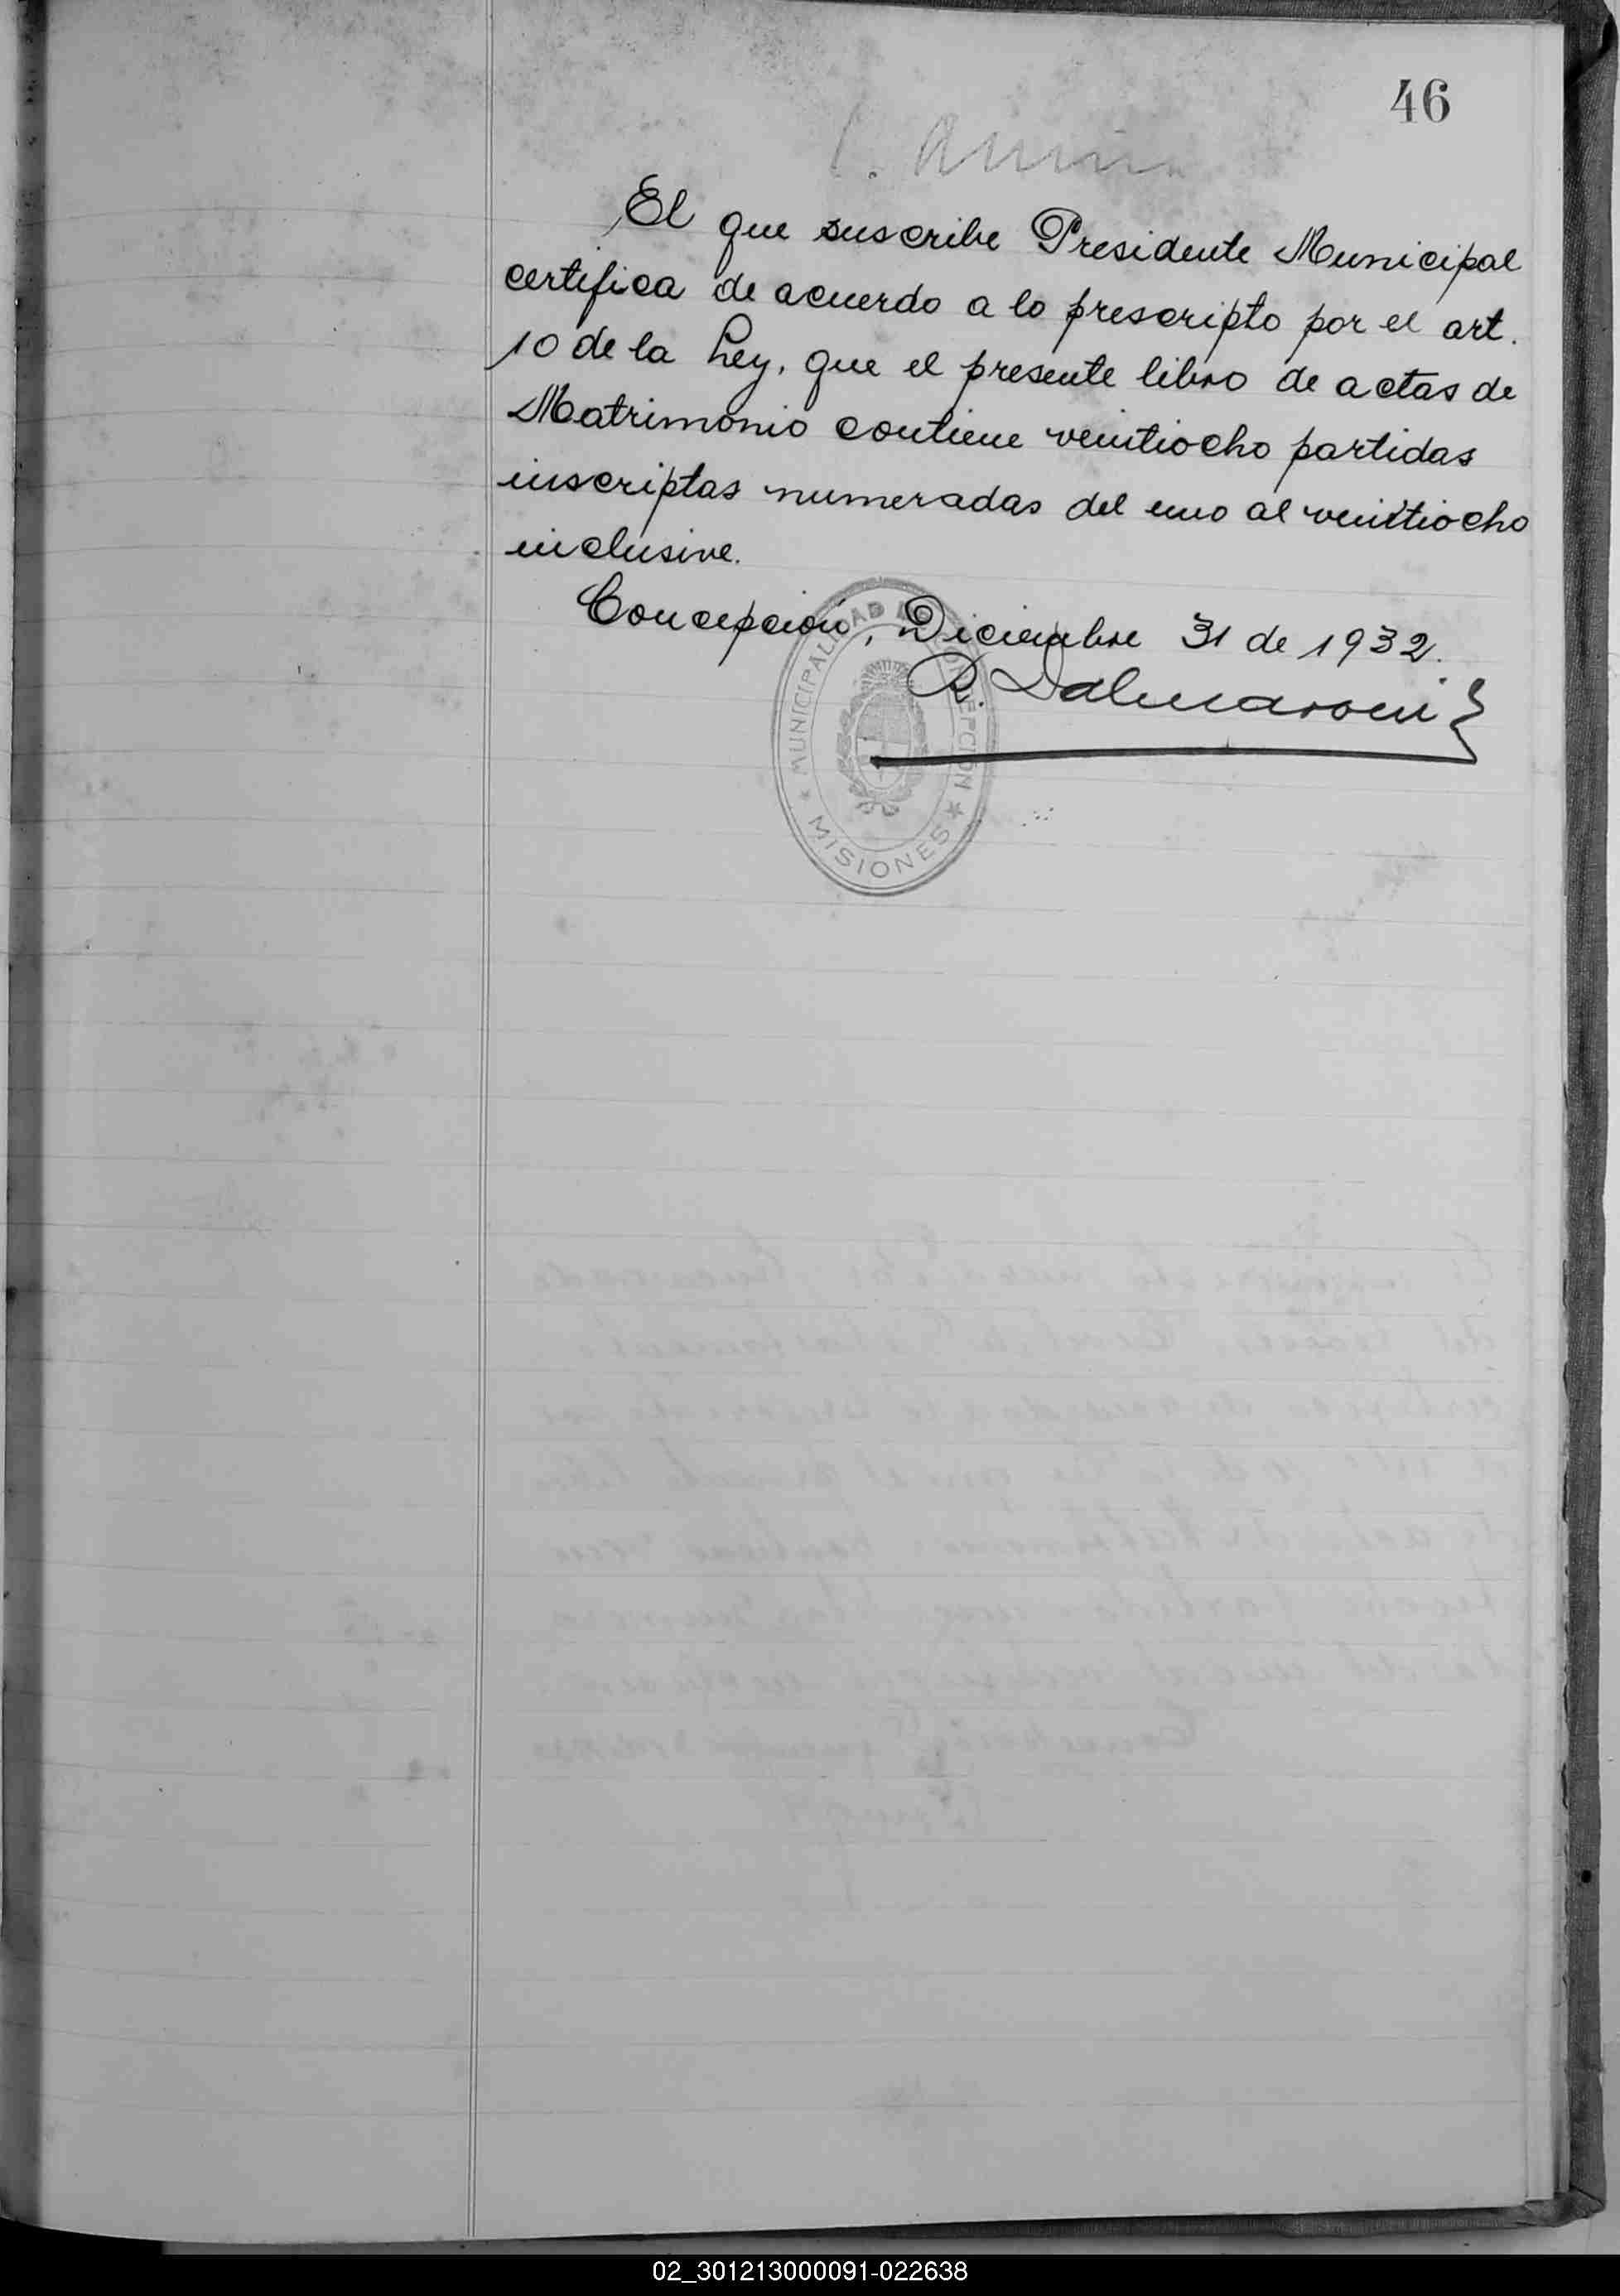 46
El que suscribe Presidente Municipal
certifica de acuerdo a lo prescripto por el art.
10 de la Ley, que el presente libro de actas de
Matrimonio contiene venitiocho partidas
inscriptas numeradas del uno al venitiocho
inclusive.
Concepción, Diciembre 31 de 1932.
R. Dalmaroni
MUNICIPALIDAD DE CONCEPCIÓN
* MISIONES *
02_301213000091-022638